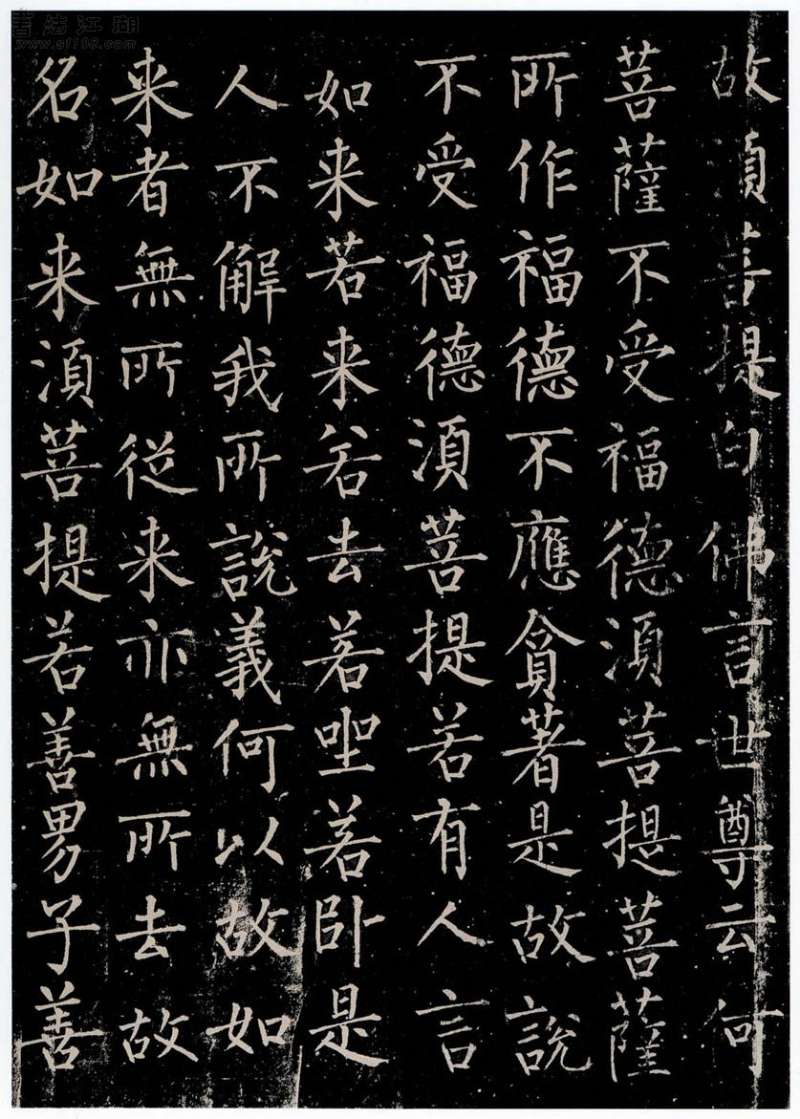 故須菩提白佛言世尊云何
菩薩不受福德須菩提菩薩
所作福德不應貪著是故說
不受福德須菩提若有人言
如来若来若去若坐若卧是
人不解我所說義何以故如
来者無所從来亦無所去故
名如来須菩提若善男子善
書法江湖